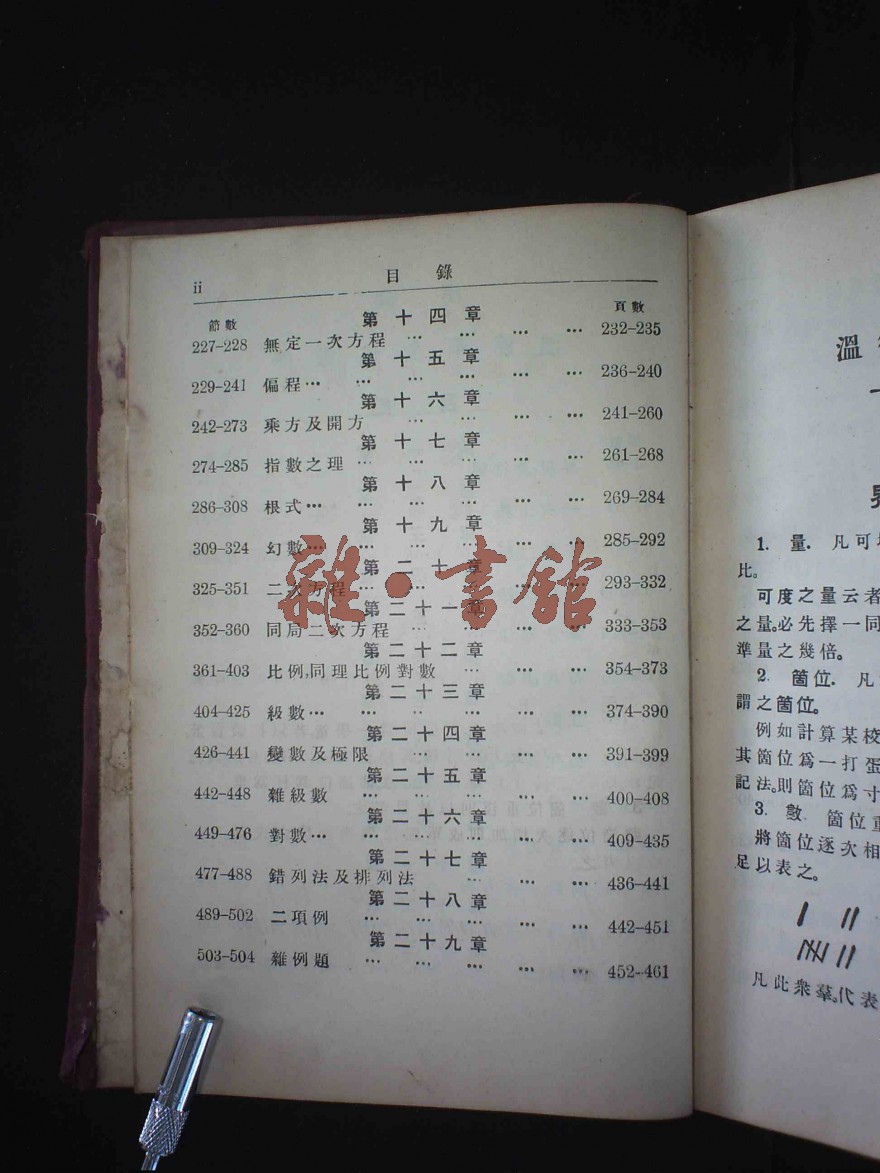 ii
目錄
節數
頁數
第十四章
227–228 無定一次方程 … … … … 232–235
第十五章
229–241 偏程… … … … … … 236–240
第十六章
242–273 乘方及開方 … … … … 241–260
第十七章
274–285 指數之理 … … … … … 261–268
第十八章
286–308 根式… … … … … … 269–284
第十九章
309–324 幻數… … … … … … 285–292
第二十章
325–351 二次方程… … … … … 293–332
第二十一章
352–360 同局二次方程 … … … … 333–353
第二十二章
361–403 比例,同理比例對數 … … … 354–373
第二十三章
404–425 級數… … … … … … 374–390
第二十四章
426–441 變數及極限 … … … … 391–399
第二十五章
442–448 雜級數 … … … … … 400–408
第二十六章
449–476 對數… … … … … … 409–435
第二十七章
477–488 錯列法及排列法 … … … 436–441
第二十八章
489–502 二項例 … … … … … 442–451
第二十九章
503–504 雜例題 … … … … … 452–461
雜·書館
溫
1. 量. 凡可
比。
可度之量云者
之量。必先擇一同
準量之幾倍。
2. 箇位. 凡
謂之箇位。
例如計算某校
其箇位爲一打蛋
記法。則箇位爲寸
3. 數. 箇位重
將箇位逐次相
足以表之。
凡此衆羣。代表